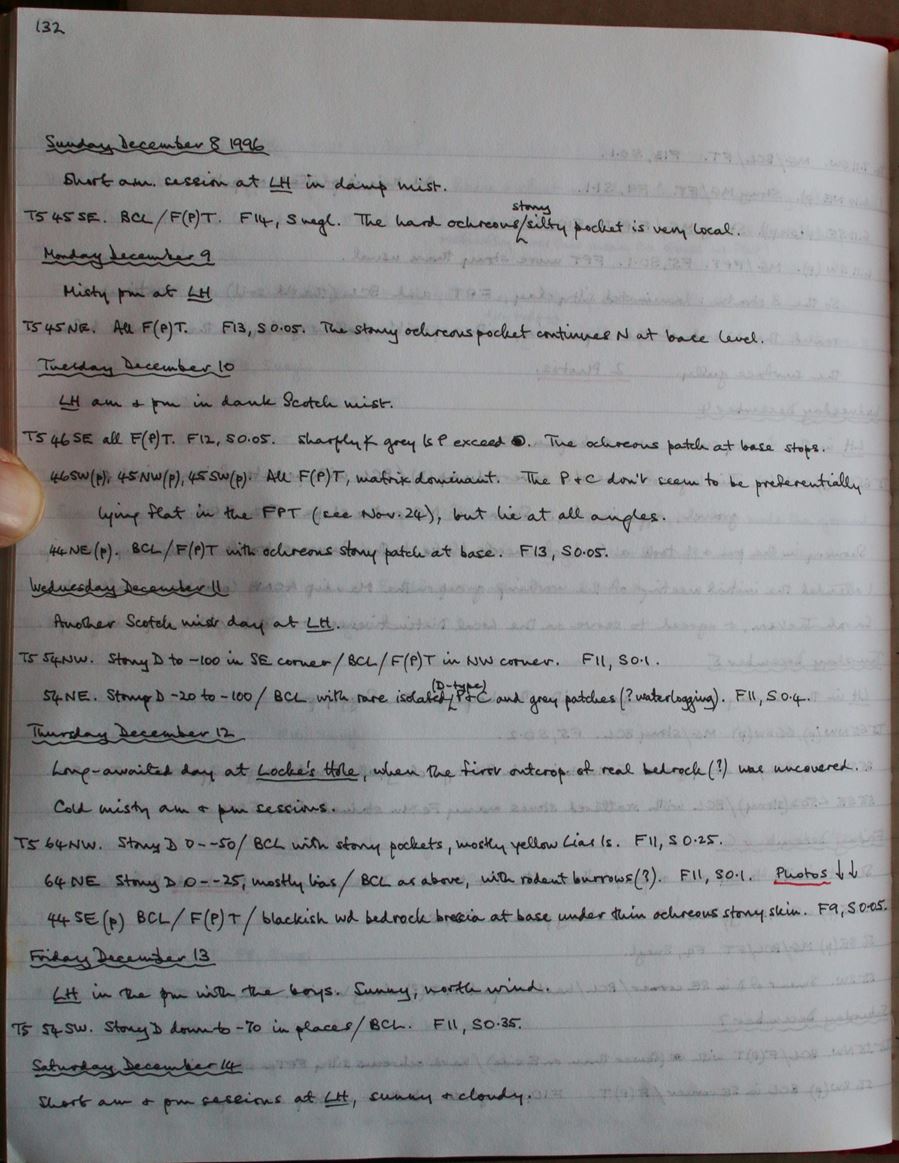 132
Sunday December 8 1996
Short am. session at LH in damp mist.
T5 45 SE. BCL/F(P)T. F14, S negl. The hard ochreous/stony silty pocket is very local.
Monday December 9
Misty pm at LH
T5 45 NE. All F(P)T. F13, S 0.05. The stony ochreous pocket continues N at base level.
Tuesday December 10
LH am & pm in dank Scotch mist.
T5 46 SE all F(P)T. F12, S 0.05. Sharply K grey ls P exceed. The ochreous patch at base stops.
46SW(p), 45NW(p), 45SW(p). All F(P)T, matrix dominant. The P+C don't seem to be preferentially
lying flat in the FPT (see Nov. 24), but lie at all angles.
44 NE (p). BCL/F(P)T with ochreous stony patch at base. F13, S 0.05.
Wednesday December 11
Another Scotch mist day at LH.
T5 54NW. Stony D to -100 in SE corner/BCL/F(P)T in NW corner. F11, S 0.1.
54 NE. Stony D -20 to -100/BCL with rare isolated (D-type) P+C and grey patches (? waterlogging). F11, S 0.4.
Thursday December 12
Long-awaited day at Locke's Hole, when the first outcrop of real bedrock (?) was uncovered.
Cold misty am & pm sessions.
T5 64 NW. Stony D 0--50/BCL with stony pockets, mostly yellow Lias ls. F11, S 0.25.
64 NE Stony D 0--25, mostly lias/BCL as above, with rodent burrows (?). F11, S 0.1. Photos ↓↓
44 SE (p) BCL/F(P)T/blackish wd bedrock breccia at base under thin ochreous stony skin. F9, S 0.05.
Friday December 13
LH in the pm with the boys. Sunny, north wind.
T5 54 SW. Stony D down to -70 in places/BCL. F11, S 0.35.
Saturday December 14
Short am & pm sessions at LH, sunny & cloudy.